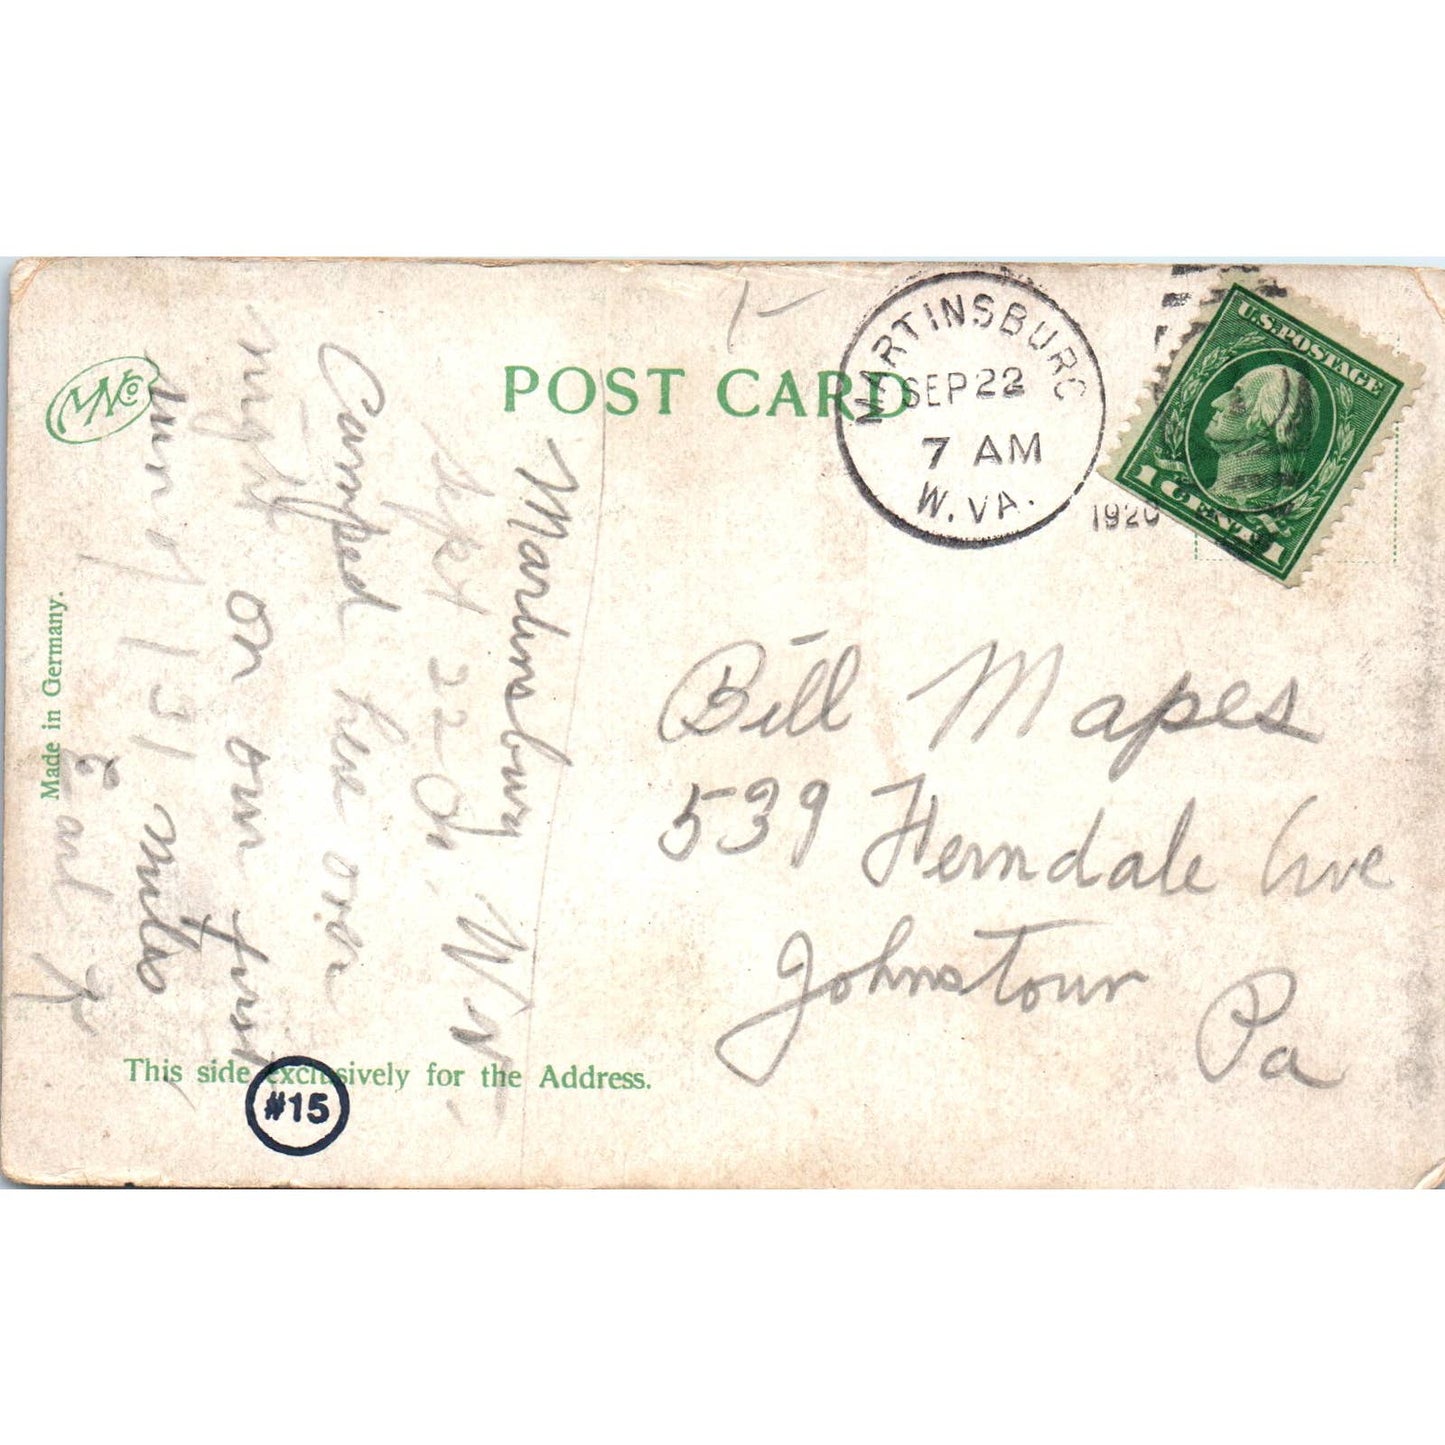 MNCo
POST CARD
MARTINSBURG
SEP 22
7 AM
W. VA.
1920
U.S. POSTAGE
1 CENT 1
Martinsburg W. V.
Sept 22-
Camped here over
night on our first
run of 131 miles
Earl
Bill Mapes
539 Ferndale Ave
Johnstown
Pa
Made in Germany.
This side exclusively for the Address.
#15